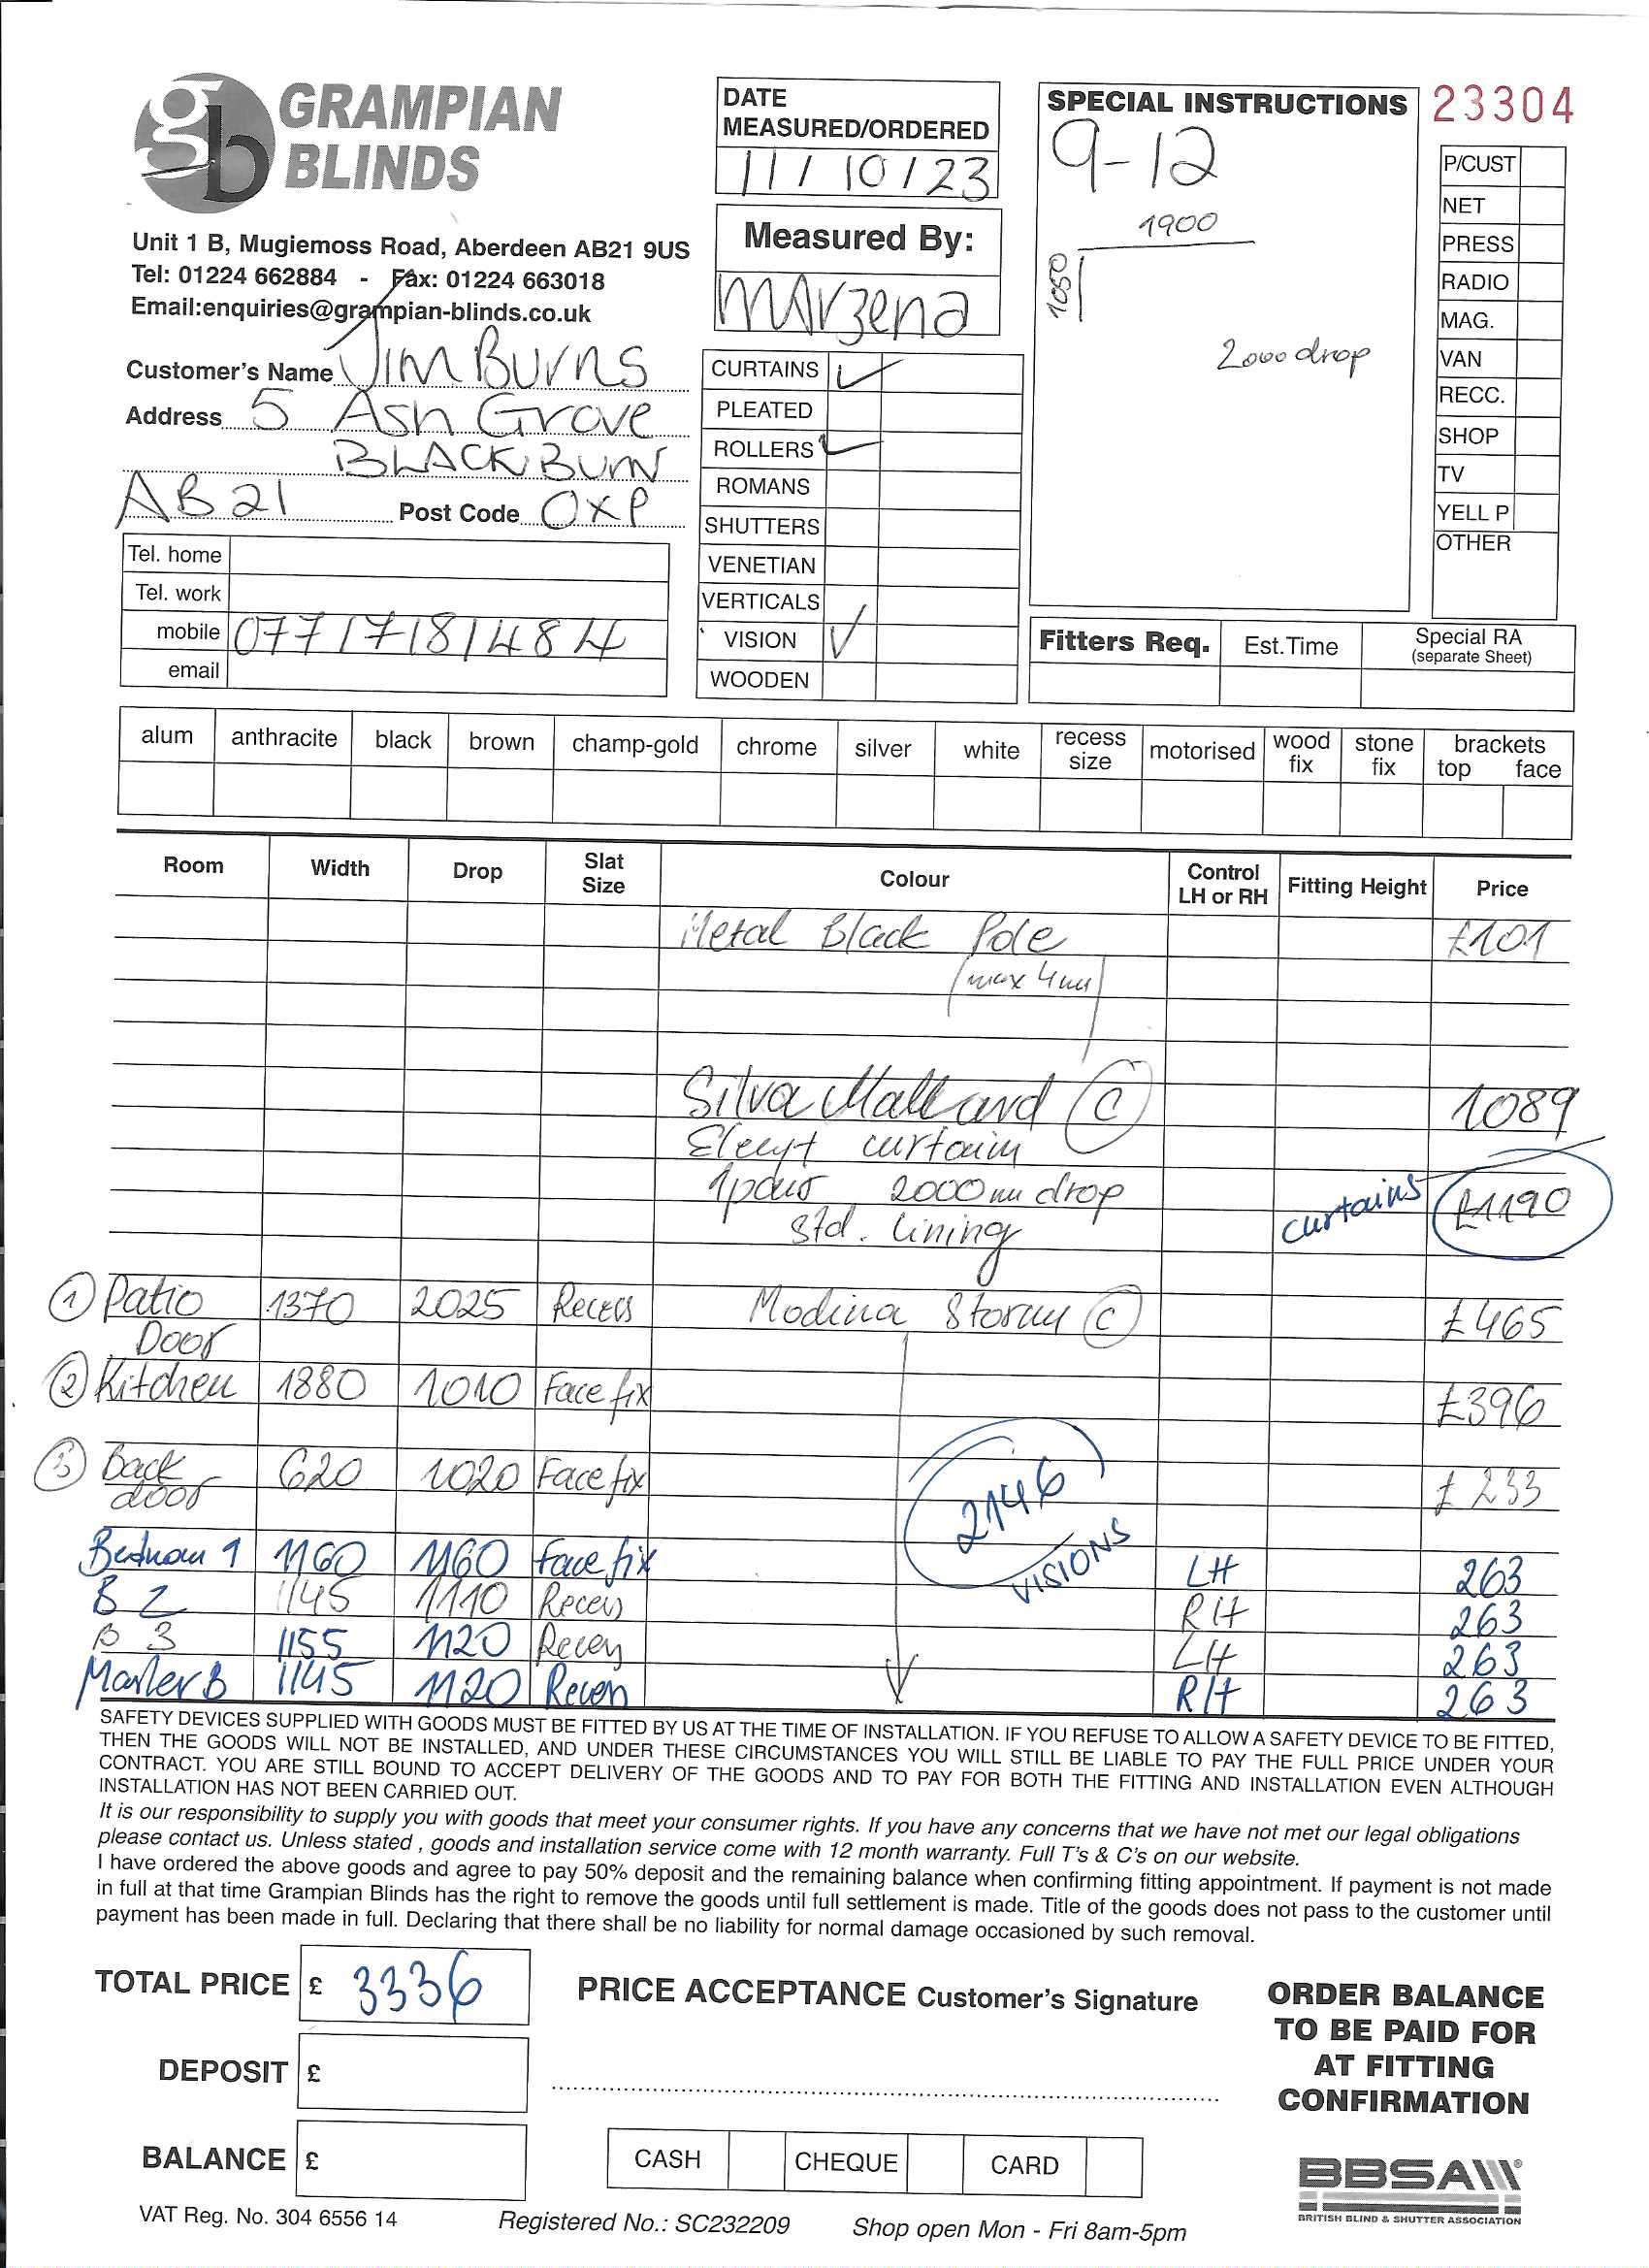 gb GRAMPIAN
BLINDS
Unit 1 B, Mugiemoss Road, Aberdeen AB21 9US
Tel: 01224 662884 - Fax: 01224 663018
Email:enquiries@grampian-blinds.co.uk
Customer's Name Jim Burns
Address 5 Ash Grove
BLACKBURN
AB21 Post Code 0XP
Tel. home
Tel. work
mobile 07717181484
email
DATE
MEASURED/ORDERED
11/10/23
Measured By:
MArzena
CURTAINS ✓
PLEATED
ROLLERS ✓
ROMANS
SHUTTERS
VENETIAN
VERTICALS
VISION ✓
WOODEN
SPECIAL INSTRUCTIONS
9-12
1900
1050
2000 drop
23304
P/CUST
NET
PRESS
RADIO
MAG.
VAN
RECC.
SHOP
TV
YELL P
OTHER
Fitters Req. Est.Time Special RA
(separate Sheet)
alum anthracite black brown champ-gold chrome silver white recess size motorised wood fix stone fix brackets top face
Room Width Drop Slat Size Colour Control LH or RH Fitting Height Price
Metal Black Pole £101
(max 4m)
Silva Mallard C 1089
curtain
1 pair 2000mm drop curtains £1190
Std. lining
1 Patio 1370 2025 Recess Modina Stormy C £465
Door
2 Kitchen 1880 1010 Face fix £396
3 Back 620 1020 Face fix £233
door
2146
VISIONS
Bedroom 1 1160 1160 Face fix LH 263
B 2 1145 1110 Recess RH 263
B 3 1155 1120 Recess LH 263
Master B 1145 1120 Recess RH 263
SAFETY DEVICES SUPPLIED WITH GOODS MUST BE FITTED BY US AT THE TIME OF INSTALLATION. IF YOU REFUSE TO ALLOW A SAFETY DEVICE TO BE FITTED,
THEN THE GOODS WILL NOT BE INSTALLED, AND UNDER THESE CIRCUMSTANCES YOU WILL STILL BE LIABLE TO PAY THE FULL PRICE UNDER YOUR
CONTRACT. YOU ARE STILL BOUND TO ACCEPT DELIVERY OF THE GOODS AND TO PAY FOR BOTH THE FITTING AND INSTALLATION EVEN ALTHOUGH
INSTALLATION HAS NOT BEEN CARRIED OUT.
It is our responsibility to supply you with goods that meet your consumer rights. If you have any concerns that we have not met our legal obligations
please contact us. Unless stated , goods and installation service come with 12 month warranty. Full T's & C's on our website.
I have ordered the above goods and agree to pay 50% deposit and the remaining balance when confirming fitting appointment. If payment is not made
in full at that time Grampian Blinds has the right to remove the goods until full settlement is made. Title of the goods does not pass to the customer until
payment has been made in full. Declaring that there shall be no liability for normal damage occasioned by such removal.
TOTAL PRICE £ 3336
DEPOSIT £
BALANCE £
PRICE ACCEPTANCE Customer's Signature
CASH CHEQUE CARD
ORDER BALANCE
TO BE PAID FOR
AT FITTING
CONFIRMATION
BBSA
BRITISH BLIND & SHUTTER ASSOCIATION
VAT Reg. No. 304 6556 14 Registered No.: SC232209 Shop open Mon - Fri 8am-5pm